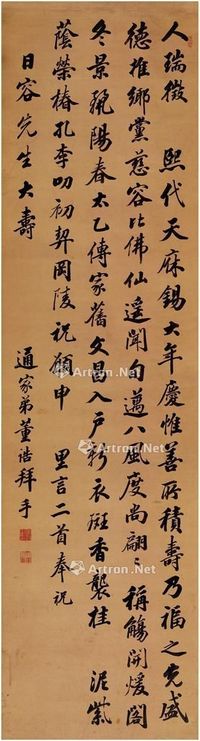 人瑞徵 熙代天庥錫大年慶惟善所積壽乃福之先盛
德推鄉黨慈容比佛仙遥聞句邁八風度尚翩:稱觴開煖閣
冬景覬陽春太乙傳家舊文昌入戶新衣斑香襲桂 泥紫
蔭榮椿孔李叨初契岡陵祝願申 里言二首奉祝
日容先生大壽
通家弟董誥拜手